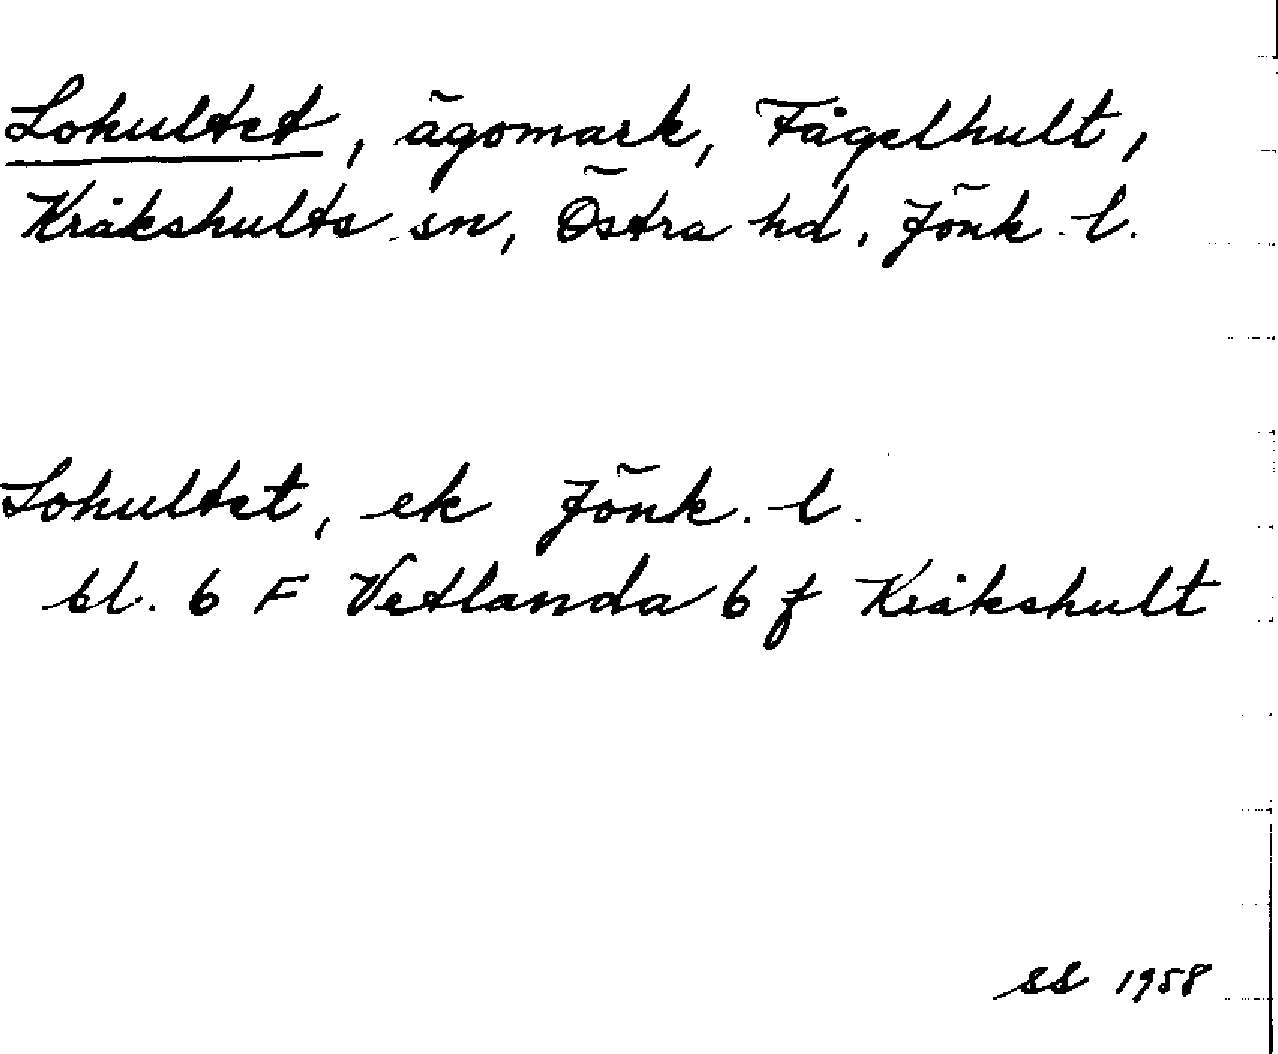 Lohultet, ägomark, Fågelhult,
Kråkshults sn, Östra hd, Jönk. l.
Lohultet, ek Jönk. l.
bl. 6 F Vetlanda 6 f Kråkshult
SS 1958